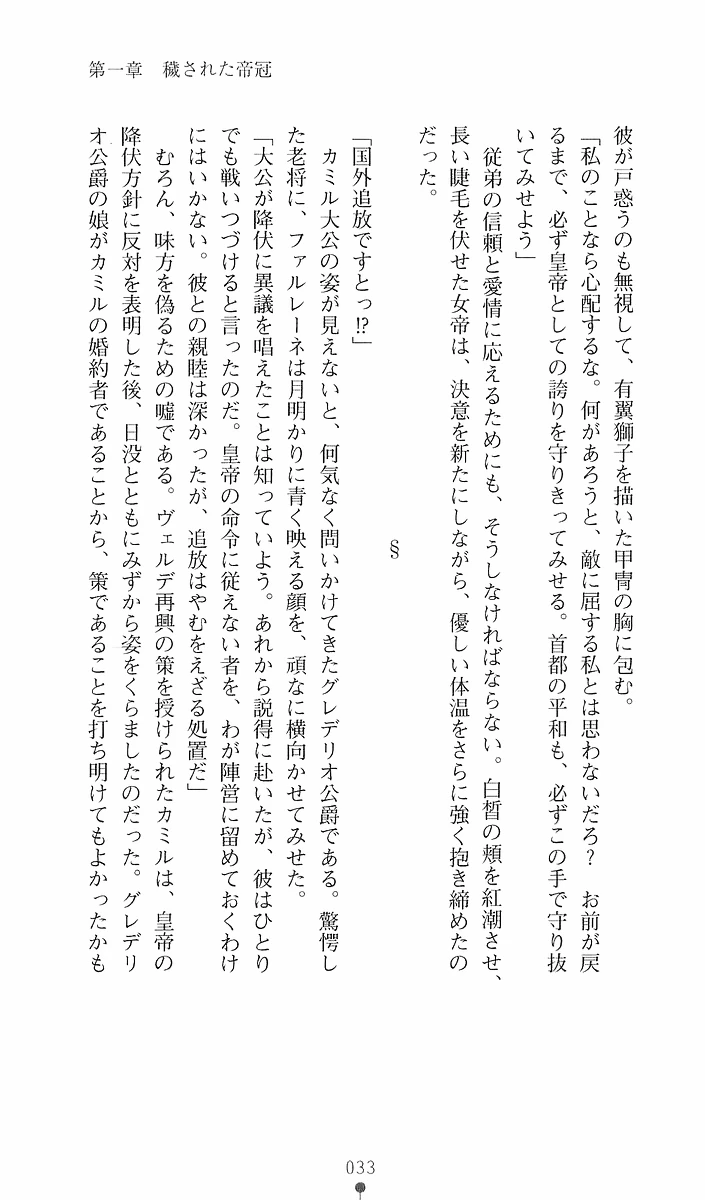 第一章　穢された帝冠
彼が戸惑うのも無視して、有翼獅子を描いた甲冑の胸に包む。
「私のことなら心配するな。何があろうと、敵に屈する私とは思わないだろ？　お前が戻
るまで、必ず皇帝としての誇りを守りきってみせる。首都の平和も、必ずこの手で守り抜
いてみせよう」
　従弟の信頼と愛情に応えるためにも、そうしなければならない。白皙の頬を紅潮させ、
長い睫毛を伏せた女帝は、決意を新たにしながら、優しい体温をさらに強く抱き締めたの
だった。
§
「国外追放ですとっ!?」
　カミル大公の姿が見えないと、何気なく問いかけてきたグレデリオ公爵である。驚愕し
た老将に、ファルレーネは月明かりに青く映える顔を、頑なに横向かせてみせた。
「大公が降伏に異議を唱えたことは知っていよう。あれから説得に赴いたが、彼はひとり
でも戦いつづけると言ったのだ。皇帝の命令に従えない者を、わが陣営に留めておくわけ
にはいかない。彼との親睦は深かったが、追放はやむをえざる処置だ」
　むろん、味方を偽るための嘘である。ヴェルデ再興の策を授けられたカミルは、皇帝の
降伏方針に反対を表明した後、日没とともにみずから姿をくらましたのだった。グレデリ
オ公爵の娘がカミルの婚約者であることから、策であることを打ち明けてもよかったかも
033